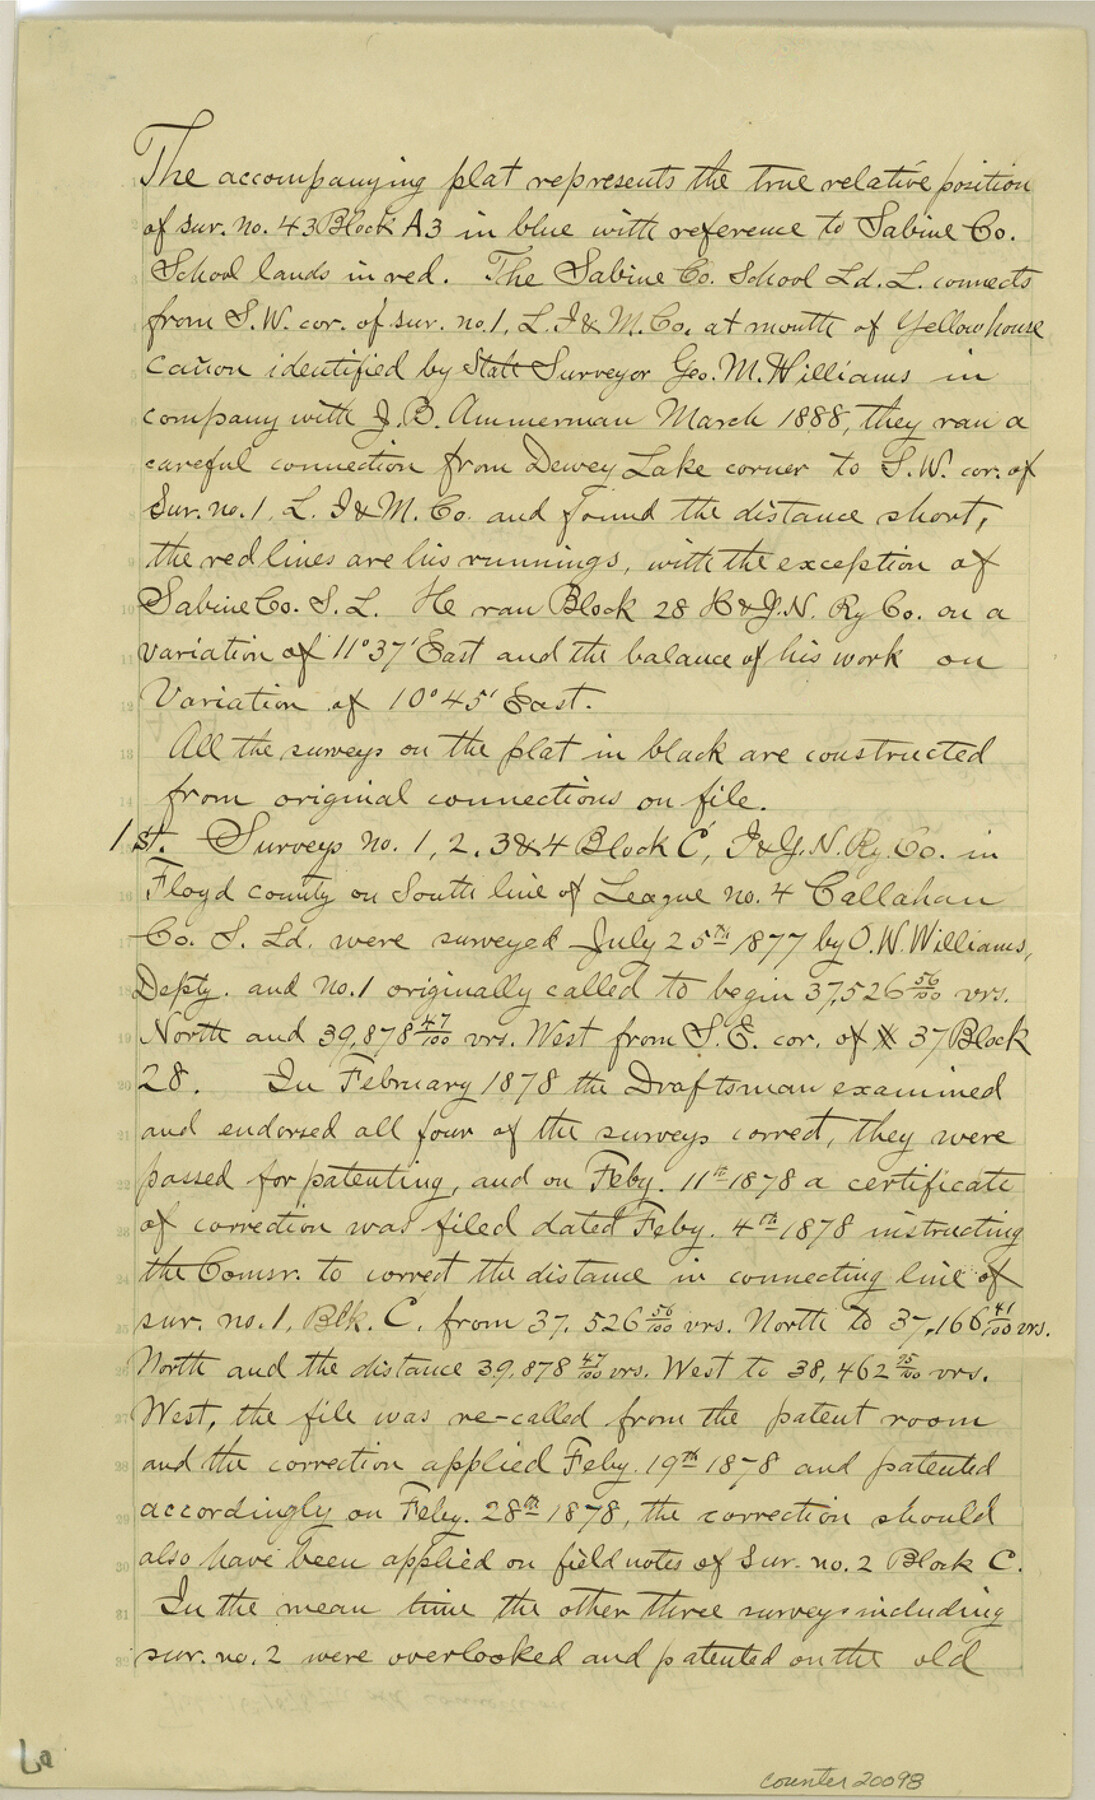 The accompanying plat represents the true relative position
of sur. no. 43 Block A3 in blue with reference to Sabine Co.
School lands in red. The Sabine Co. School Ld. L. connects
from S.W. cor. of sur. no. 1, L. I & M. Co. at mouth of Yellowhouse
Cañon identified by State Surveyor Geo. M. Williams in
company with J. B. Ammerman March 1888, they ran a
careful connection from Dewey Lake corner to S.W. cor. of
Sur. no. 1, L. I & M. Co. and found the distance short,
the red lines are his runnings, with the exception of
Sabine Co. S. L. He ran Block 28 H & G.N. Ry Co. on a
variation of 11° 37' East and the balance of his work on
Variation of 10° 45' East.
All the surveys on the plat in black are constructed
from original connections on file.
1st. Surveys no. 1, 2, 3 & 4 Block C, I & G. N. Ry. Co. in
Floyd county on South line of League no. 4 Callahan
Co. S. Ld. were surveyed July 25th 1877 by O. W. Williams,
Depty. and no. 1 originally called to begin 37,526 56/100 vrs.
North and 39,878 47/100 vrs. West from S. E. cor. of 37 Block
28. In February 1878 the Draftsman examined
and endorsed all four of the surveys correct, they were
passed for patenting, and on Feby. 11th 1878 a certificate
of correction was filed dated Feby. 4th 1878 instructing
the Comsr. to correct the distance in connecting line of
sur. no. 1, Blk. C. from 37,526 56/100 vrs. North to 37,166 41/100 vrs.
North and the distance 39,878 47/100 vrs. West to 38,462 75/100 vrs.
West, the file was re-called from the patent room
and the correction applied Feby. 19th 1878 and patented
accordingly on Feby. 28th 1878, the correction should
also have been applied on field notes of Sur. no. 2 Block C.
In the mean time the other three surveys including
sur. no. 2 were overlooked and patented on the old
counter 20098